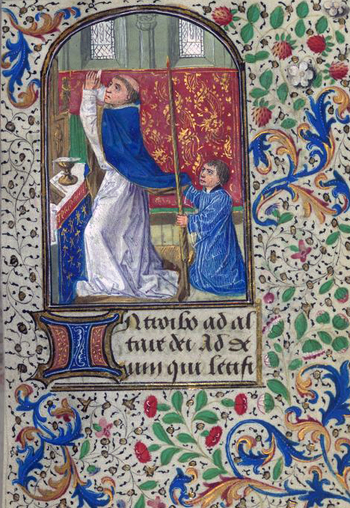 Introibo ad al
tare dei Ad de
um qui letifi